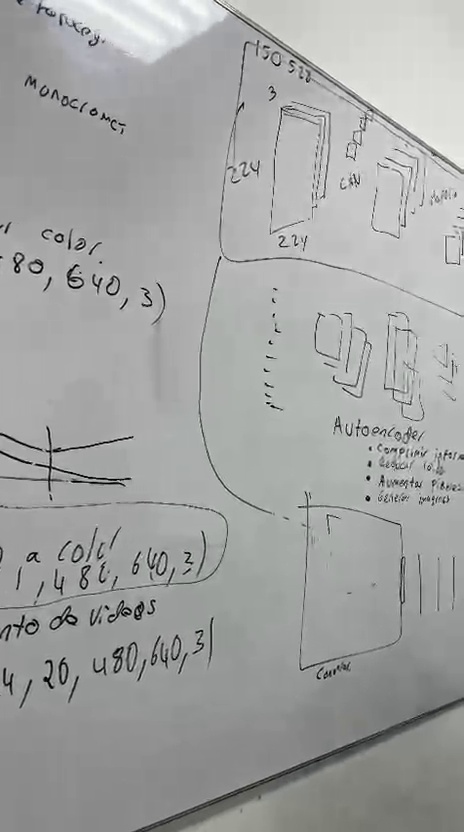 monocromat
color
80, 640, 3)
a color
1, 480, 640, 3)
nto de videos
4, 20, 480, 640, 3)
150 528
3
224
224
CNN
Autoencoder
• Comprimir inform
• Reducir
• Aumentar Pixeles
• Generar imagenes